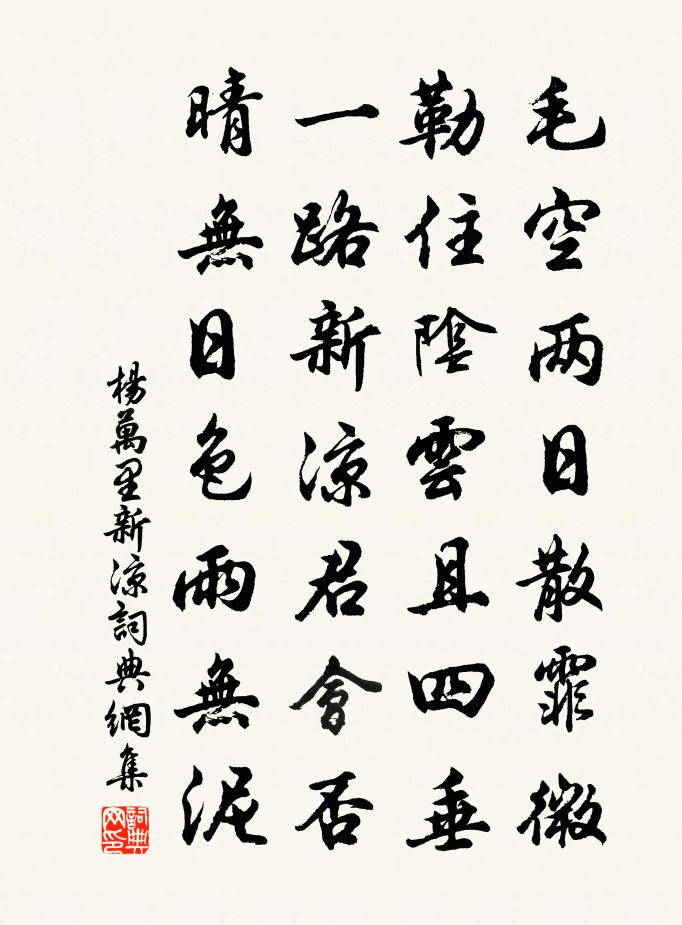 毛空两日散霏微
勒住陰雲且四垂
一路新涼君會否
晴無日色雨無泥
楊萬里新涼詞典網集
詞典網印